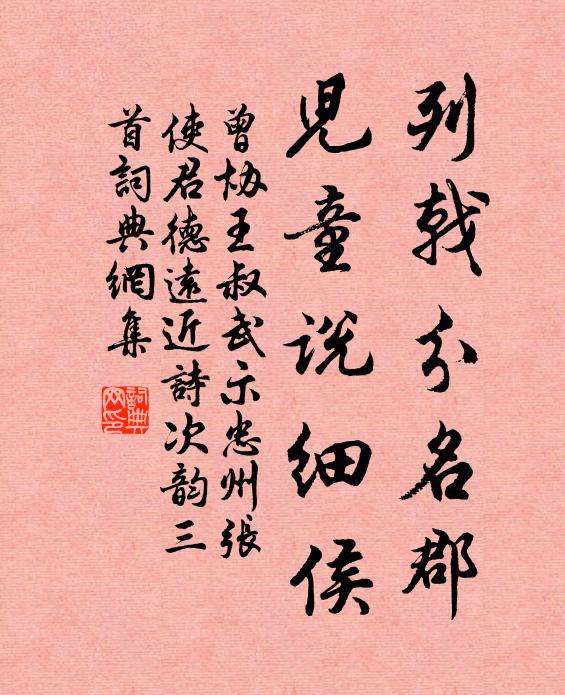 列戟分名郡
兒童説細侯
曾協王叔武示忠州張
使君德遠近詩次韵三
首詞典網集
詞典
网印